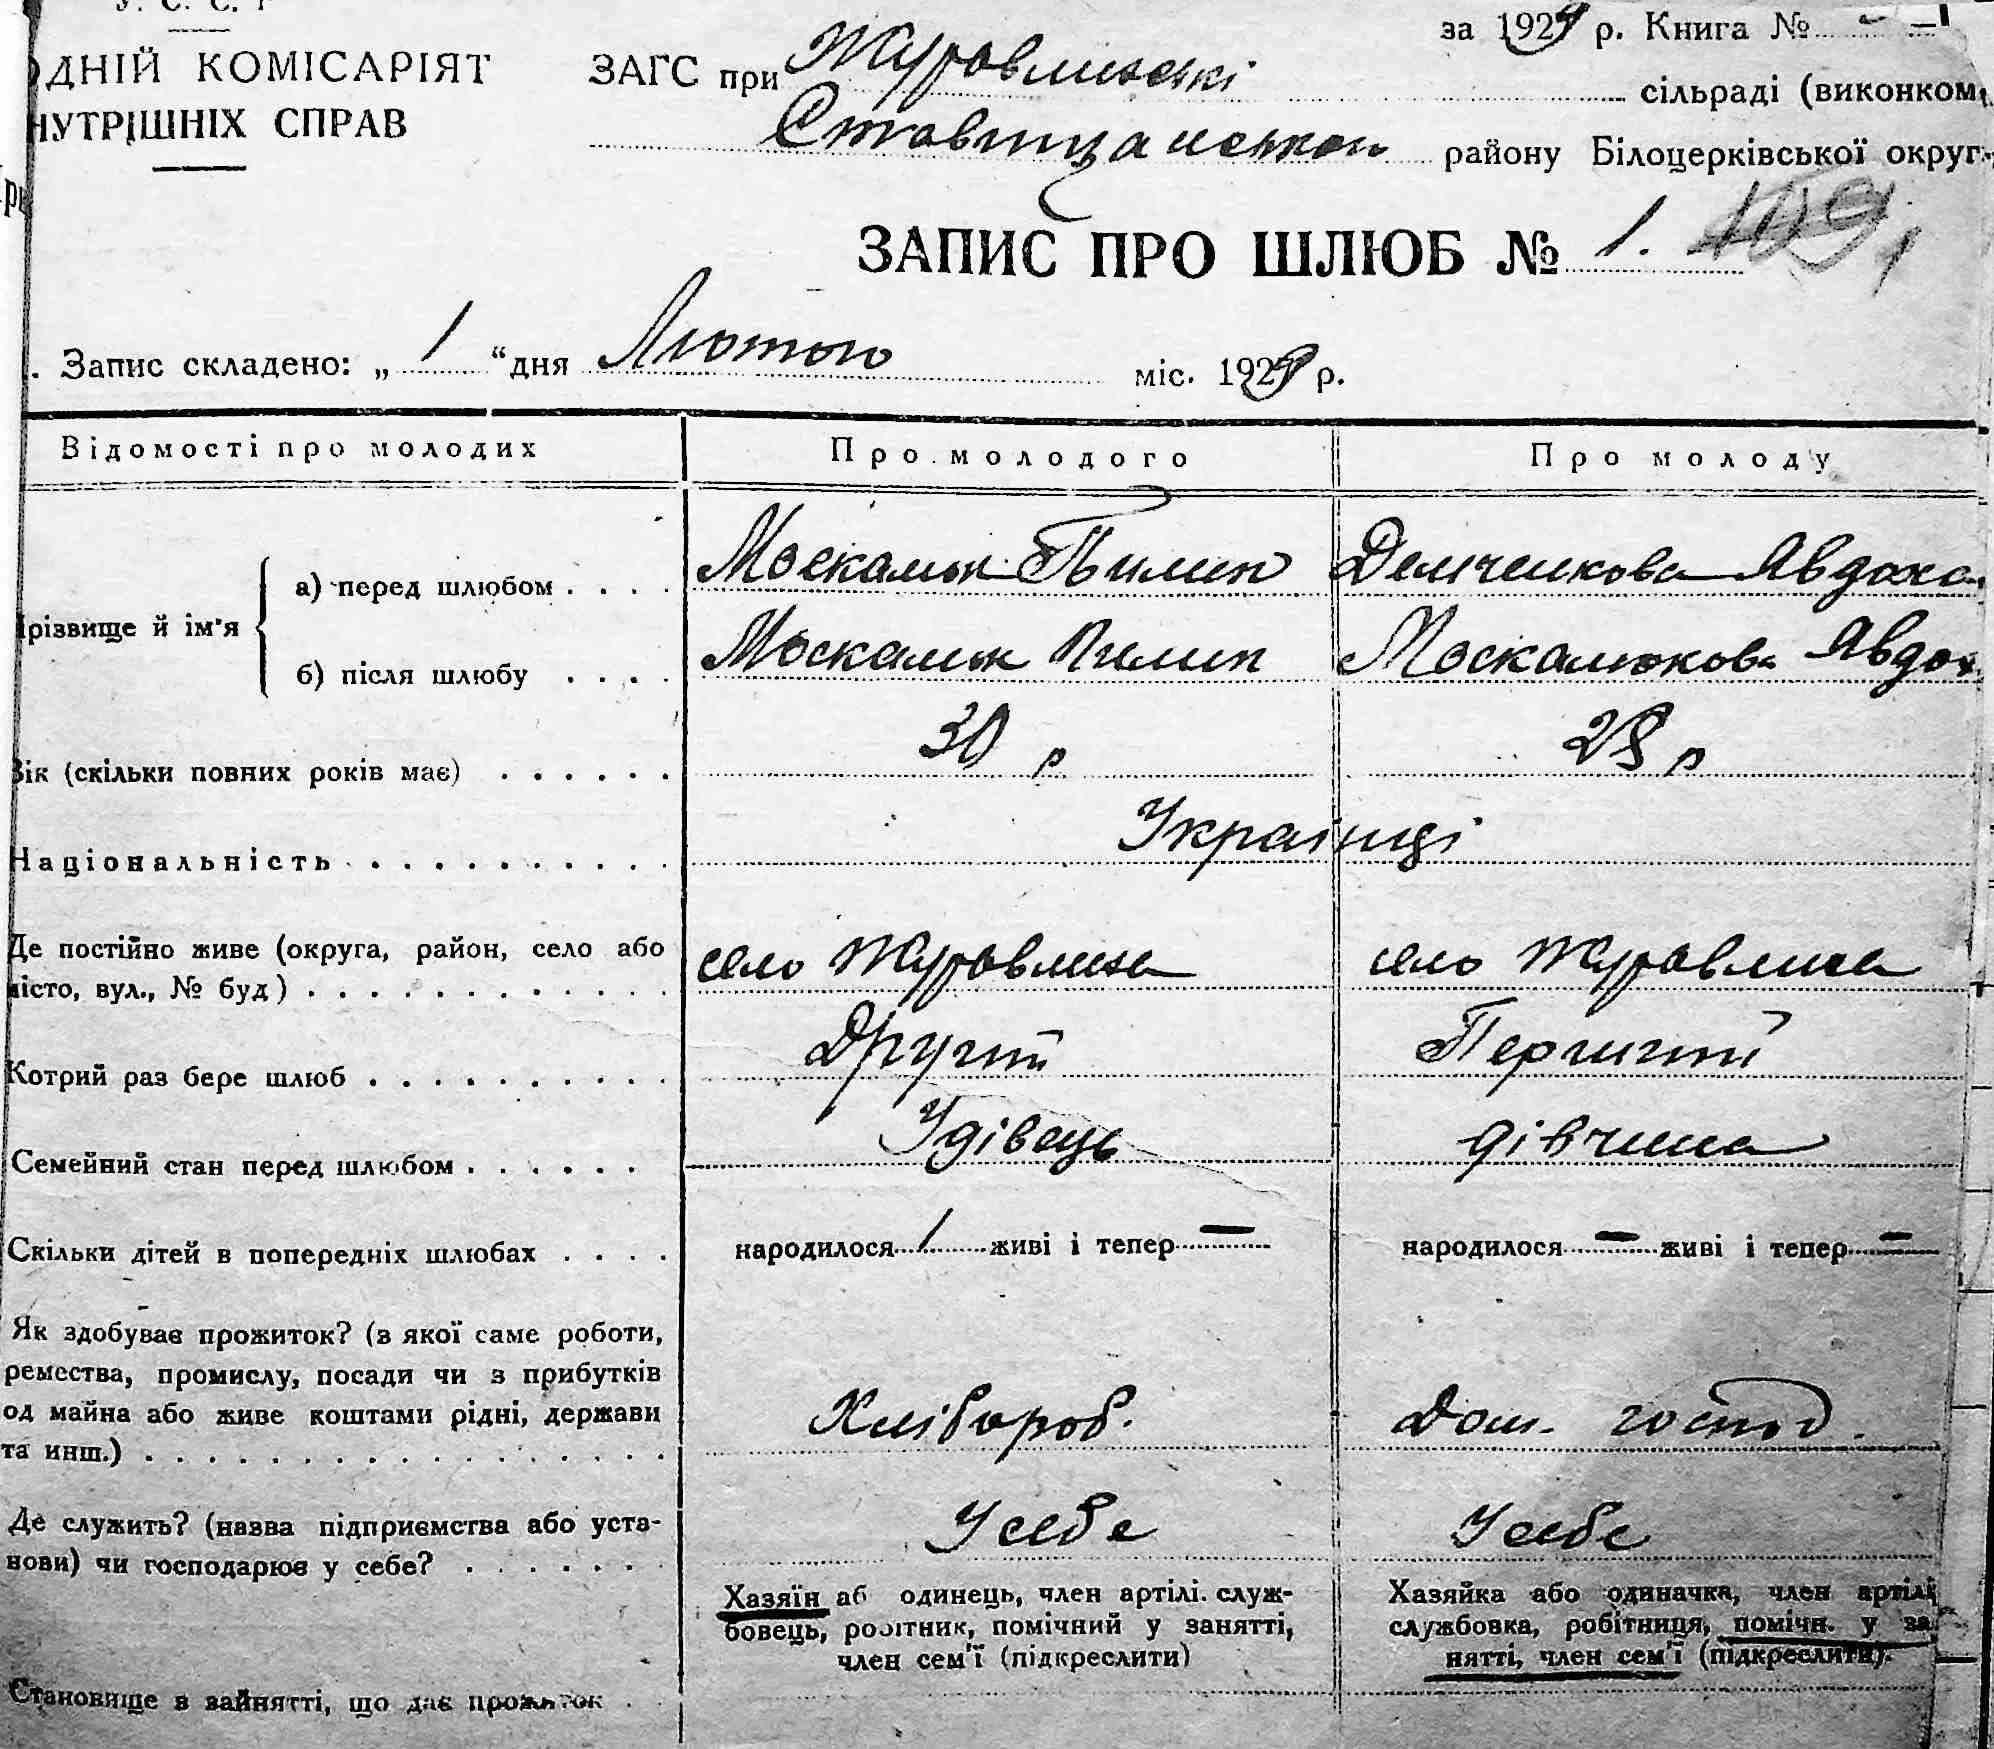 У. С. С. Р
ОДНІЙ КОМІСАРІЯТ
НУТРІШНІХ СПРАВ
за 1929 р. Книга №
ЗАГС при Журавлинскі сільраді (виконком
Ставищанськой району Білоцерківської округ.
ЗАПИС ПРО ШЛЮБ № 1.
Запис складено: „ 1 “ дня Лютого міс. 1929 р.
Відомості про молодих Про молодого Про молоду
різвище й ім'я
а) перед шлюбом . . . . Москалюк Пилип Демченкова Явдоха
б) після шлюбу . . . . Москалюк Пилип Москалюкова Явдох
Вік (скільки повних років має) . . . . . . 30 р 28 р
Національність . . . . . . . . . . Українці
Де постійно живе (округа, район, село або
місто, вул., № буд) . . . . . . . . . . . . село Журавлиха село Журавлиха
Котрий раз бере шлюб . . . . . . . . . . Другий Перший
Семейний стан перед шлюбом . . . . . . Удівець дівчина
Скільки дітей в попередніх шлюбах . . . . народилося 1 живі і тепер — народилося — живі і тепер —
Як здобуває прожиток? (з якої саме роботи,
ремества, промислу, посади чи з прибутків
од майна або живе коштами рідні, держави
та инш.) . . . . . . . . . . . . . . . . . Хлібороб. Дом. господ.
Де служить? (назва підприємства або уста-
нови) чи господарює у себе? . . . . . . У себе У себе
Хазяїн аб одинець, член артілі. служ-
бовець, робітник, помічний у занятті,
член сем'ї (підкреслити)
Хазяйка або одиначка, член артілі
службовка, робітниця, помічн. у за
нятті, член сем'ї (підкреслити).
Становище в зайнятті, що дає прожиток .